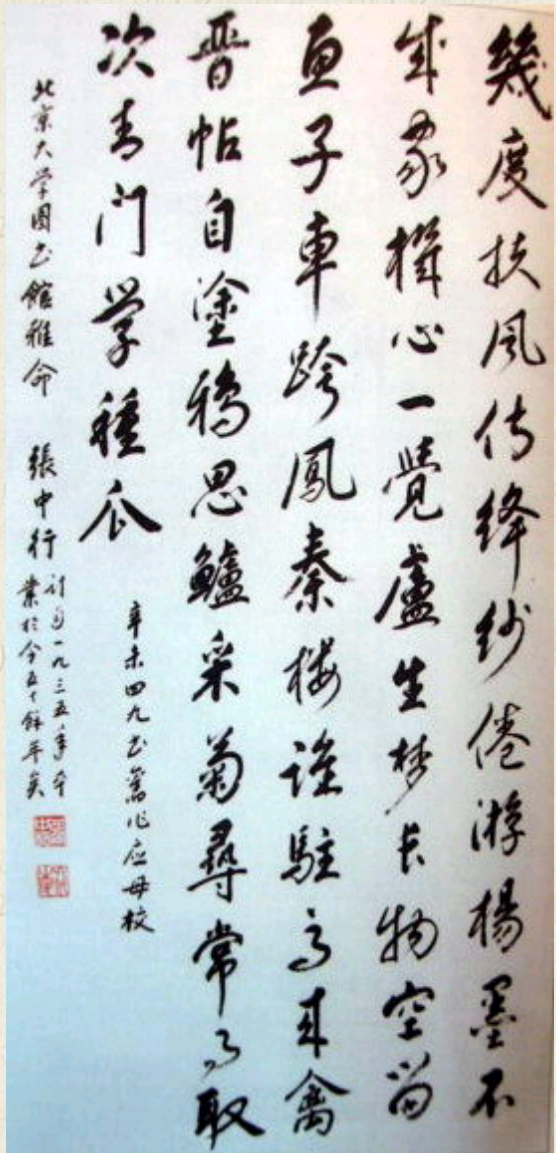 幾度扶風傳絳紗倦游楊墨不
成家機心一覺盧生夢長物空留
惠子車跨鳳秦樓誰駐馬来禽
晉帖自塗鴉思鱸采菊尋常事取
次青门學種瓜
辛未四九书舊作应母校
北京大学圖书館雅命 張中行
計自一九三五年卒
業於今五十餘年矣